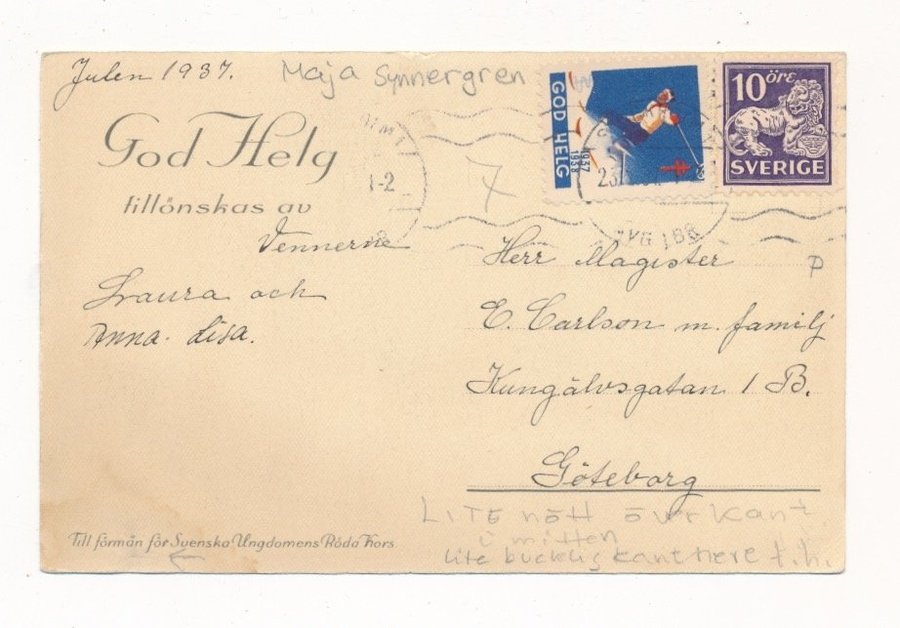 Julen 1937.
Maja Synnergren
God Helg
tillönskas av
Vennerne
Laura och
Anna-Lisa.
Till förmån för Svenska Ungdomens Röda Kors
GOD HELG
1937
1938
10 öre
SVERIGE
1-2
7
Herr Magister
E. Carlson m. familj
Kungälvsgatan 1 B.
Göteborg
P
LITE nött övrkant
i mitten
lite bucklig kant nere t.h.